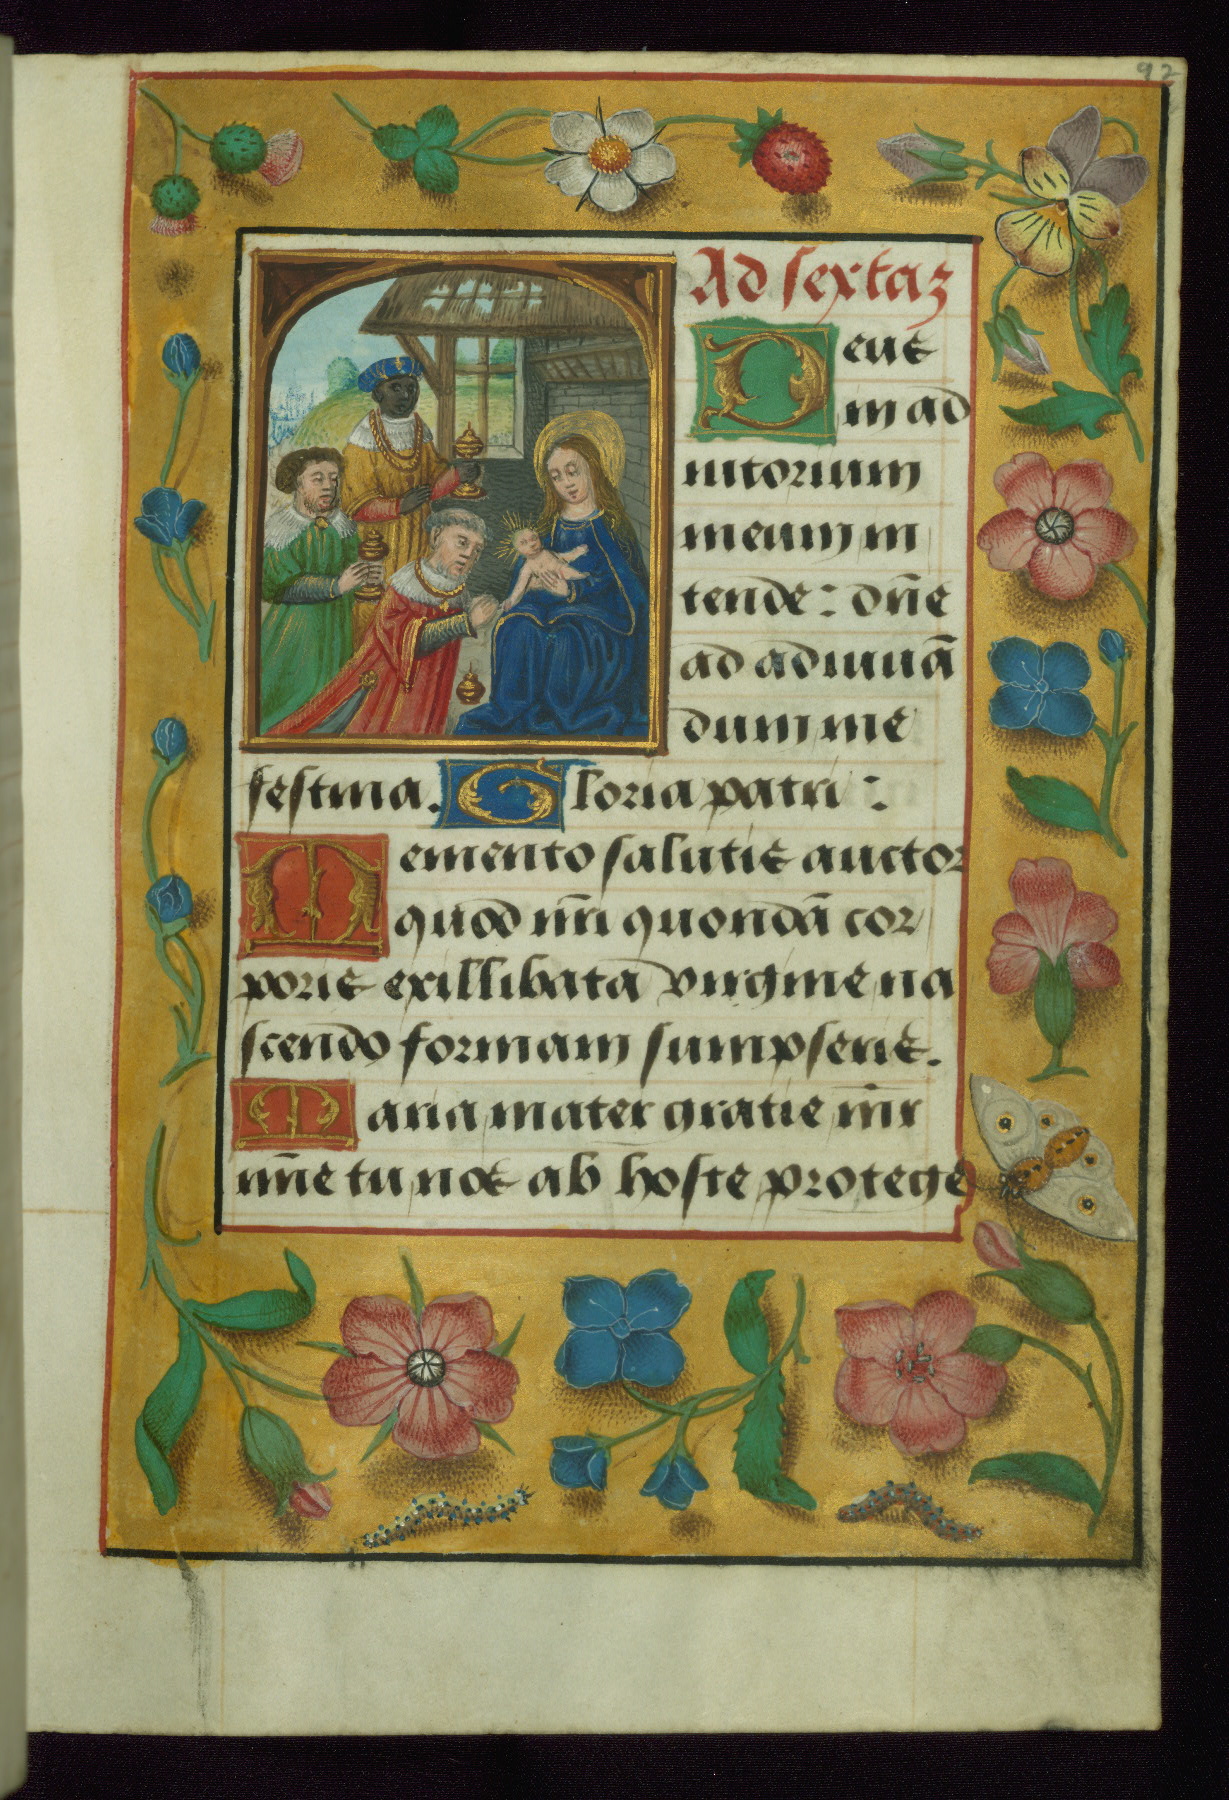 92
Ad sextaʒ
Deus
in ad
iutorium
meum in
tende: dn̄e
ad adiuuā
dum me
festina. Gloria patri:
Memento salutis auctor
quod nr̄i quondā cor
poris exillibata virgine na
scendo formam sumpseris.
Maria mater gratie mr̄
mīe tu nos ab hoste protege